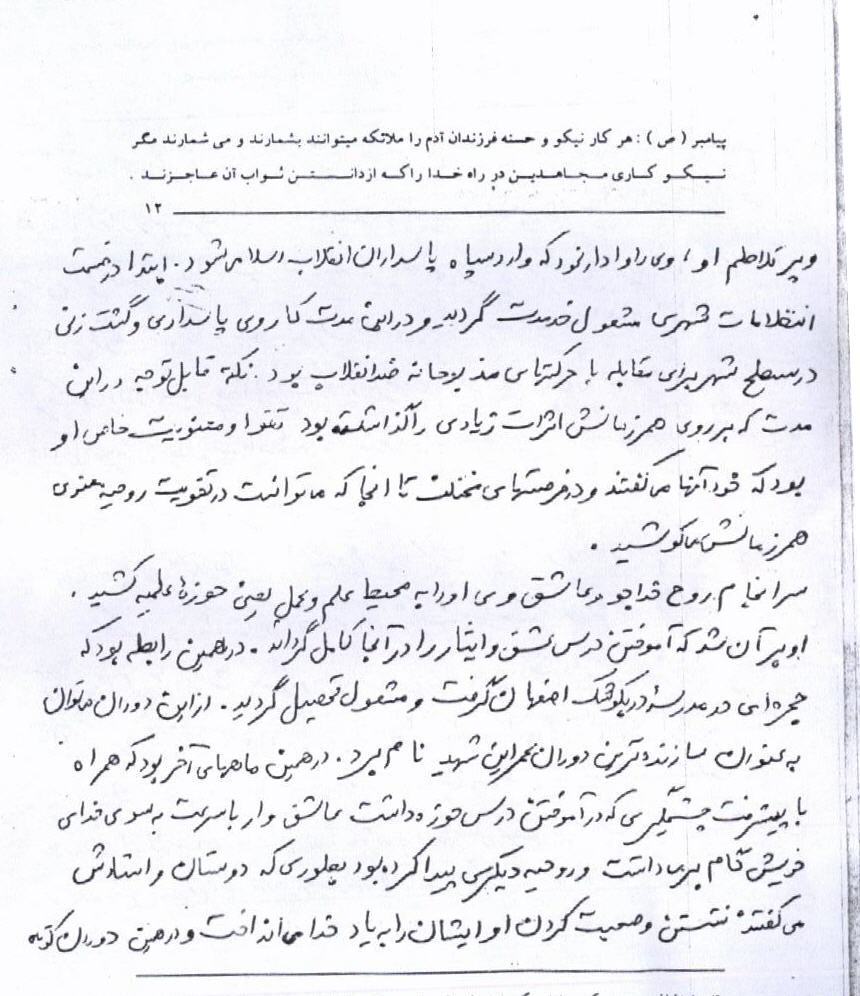 پیامبر ( ص ) : هر کار نیکو و حسنه فرزندان آدم را ملائکه میتوانند بشمارند و می شمارند مگر
نیکو کاری مجاهدین در راه خدا را که از دانستن ثواب آن عاجزند .
۱۲
وپر تلاطم او ، وی را وادار نمود که وارد سپاه پاسداران انقلاب اسلامی شود . ابتدا در قسمت
انتظامات شهری مشغول خدمت گردید و در این مدت کار وی پاسداری و گشت زنی
در سطح شهر برای مقابله با حرکتهای مذبوحانه ضد انقلاب بود . نکته قابل توجه در این
مدت که بر روی همرزمانش اثرات زیادی را گذاشته بود تقوا و معنویت خاص او
بود که خود آنها می گفتند و در فرصتهای مختلف تا آنجا که می توانست در تقویت روحیه معنوی
همرزمانش می کوشید .
سرانجام روح خداجو و عاشق وی او را به محیط علم و عمل یعنی حوزهٔ علمیه کشید .
او بر آن شد که آموختن درس عشق و ایثار را در آنجا کامل گرداند . در همین رابطه بود که
حجره ای در مدرسهٔ دربکوشک اصفهان گرفت و مشغول تحصیل گردید . از این دوران می توان
به عنوان سازنده ترین دوران عمر این شهید نام برد . در همین ماههای آخر بود که همراه
با پیشرفت چشمگیری که در آموختن درس حوزه داشت عاشق وار با سرعت به سوی خدای
خویش گام بر می داشت و روحیه دیگری پیدا کرده بود بطوری که دوستان و استادش
می گفتند نشستن و صحبت کردن او ایشان را به یاد خدا می انداخت و در همین دوران کوتاه